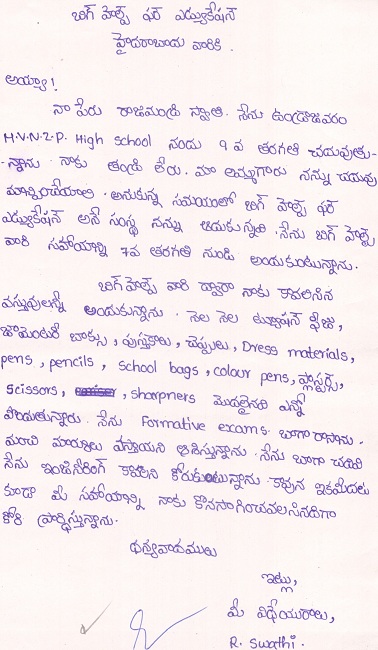 బిగ్ హెల్ప్ ఫర్ ఎడ్యుకేషన్
హైదరాబాదు వారికి.
అయ్యా!
నా పేరు రాజమండ్రి స్వాతి. నేను ఉండ్రాజవరం
H.V.N.Z.P. High school నందు 9వ తరగతి చదువుతు-
-న్నాను. నాకు తండ్రి లేరు. మా అమ్మగారు నన్ను చదువు
మాన్పించేయాలి అనుకున్న సమయంలో బిగ్ హెల్ప్ ఫర్
ఎడ్యుకేషన్ అనే సంస్థ నన్ను ఆదుకున్నది. నేను బిగ్ హెల్ప్
వారి సహాయాన్ని 7వ తరగతి నుండి అందుకుంటున్నాను.
బిగ్ హెల్ప్ వారి ద్వారా నాకు కావలసిన
వస్తువులన్నీ అందుకున్నాను. నెల నెల ట్యూషన్ ఫీజు,
జామెంటరీ బాక్సు, పుస్తకాలు, చెప్పులు, Dress materials,
pens, pencils, school bags, colour pens, ప్లాస్టర్స్,
scissors, sharpners మొదలైనవి ఎన్నో
పొందుతున్నాను. నేను Formative exams బాగా రాసాను.
మంచి మార్కులు వస్తాయని ఆశిస్తున్నాను. నేను బాగా చదివి
నేను ఇంజినీరింగ్ కావాలని కోరుకుంటున్నాను. కావున ఇకమీదట
కూడా మీ సహాయాన్ని నాకు కొనసాగించవలసినదిగా
కోరి ప్రార్థిస్తున్నాను.
ధన్యవాదములు
ఇట్లు,
మీ విధేయురాలు,
R. Swathi.